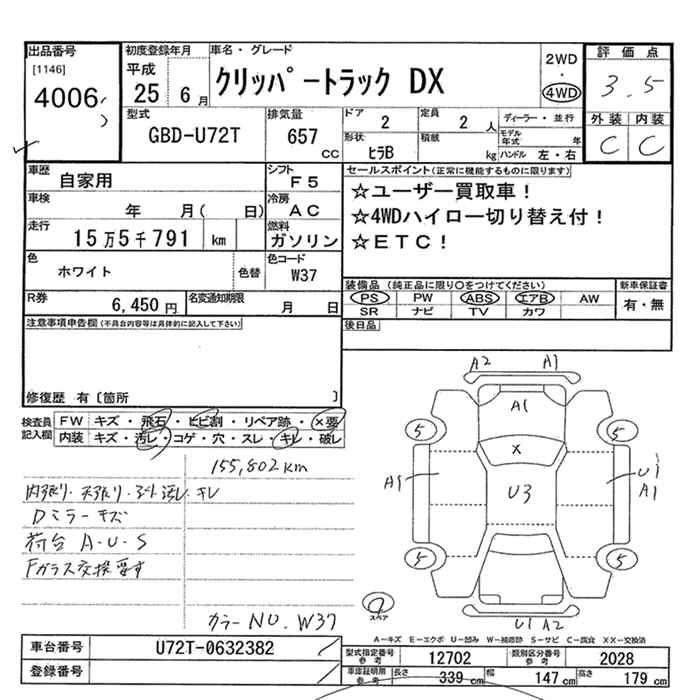 出品番号 初度登録年月 車名・グレード 2WD 評価点
[1146] 平成 クリッパートラック DX ・ 3.5
4006 25 6月 4WD 外装 内装
型式 排気量 ドア 定員 ディーラー・並行 C C
GBD-U72T 657 CC 2 2人 モデル年式 年
形状 積載
ヒラB kg ハンドル 左・右
車歴 シフト セールスポイント(正常に機能するものに限ります)
自家用 F5 ☆ユーザー買取車!
車検 冷房 ☆4WDハイロー切り替え付!
年 月( 日) AC ☆ETC!
走行 燃料
15万5千791 km ガソリン
色 色コード
ホワイト 色替 W37 装備品(純正品に限り○をつけてください) 新車保証書
R券 名変通知期限 PS PW ABS エアB AW 有・無
6,450円 月 日 SR ナビ TV カワ
注意事項申告欄(不具合内容等は具体的に記入して下さい) 後日品
修復歴 有〔箇所 〕
検査員記入欄 FW キズ・飛石・ヒビ割・リペア跡・×要
内装 キズ・汚レ・コゲ・穴・スレ・キレ・破レ
155,802km
内張り・天張り・シート汚レ・キレ
Dミラーキズ
荷台 A・U・S
Fガラス交換要す
カラーNO. W37
A2 A1
A1
5 5
X
A1 U3 U1
A1
5 5
スペア
U1 A2
A―キズ E―エクボ U―凹み W―補修跡 S―サビ C―腐食 XX―交換済
車台番号 U72T-0632382 型式指定番号 参考 12702 類別区分番号 参考 2028
登録番号 車庫証明用 参考 長さ 339 cm 幅 147 cm 高さ 179 cm